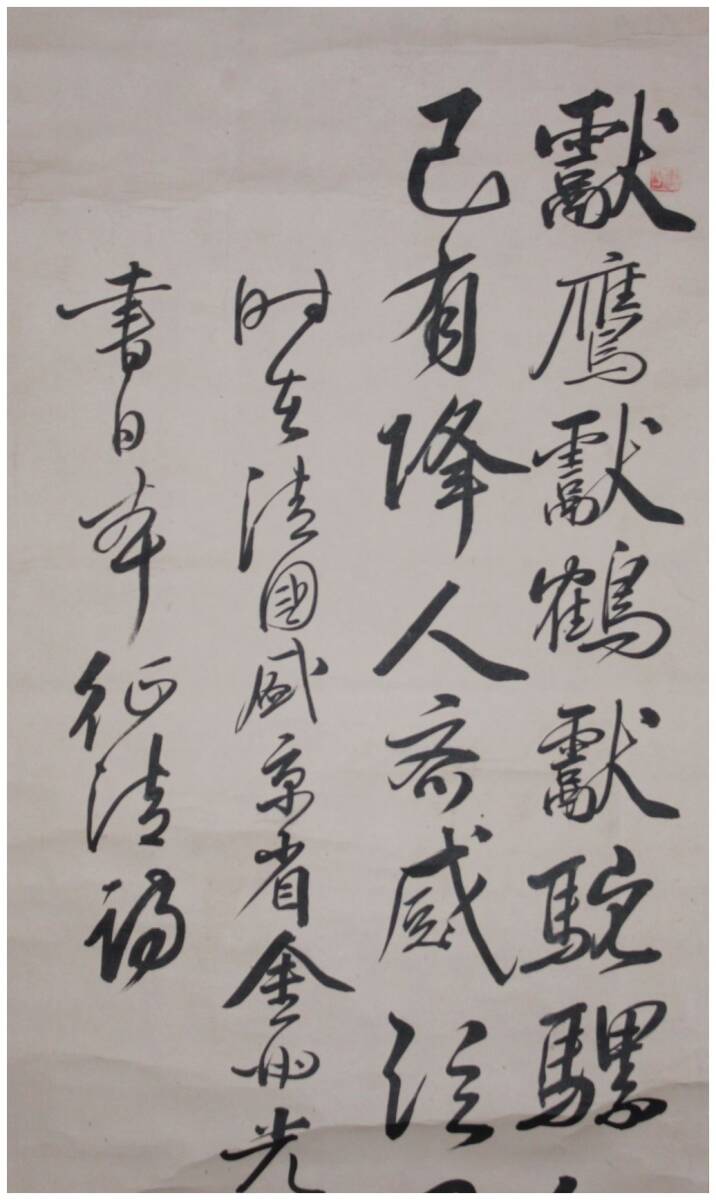 獻鷹獻鶴獻駝騾
已有降人齎感泣
时在清國盛京省金州光
書日本征清詩